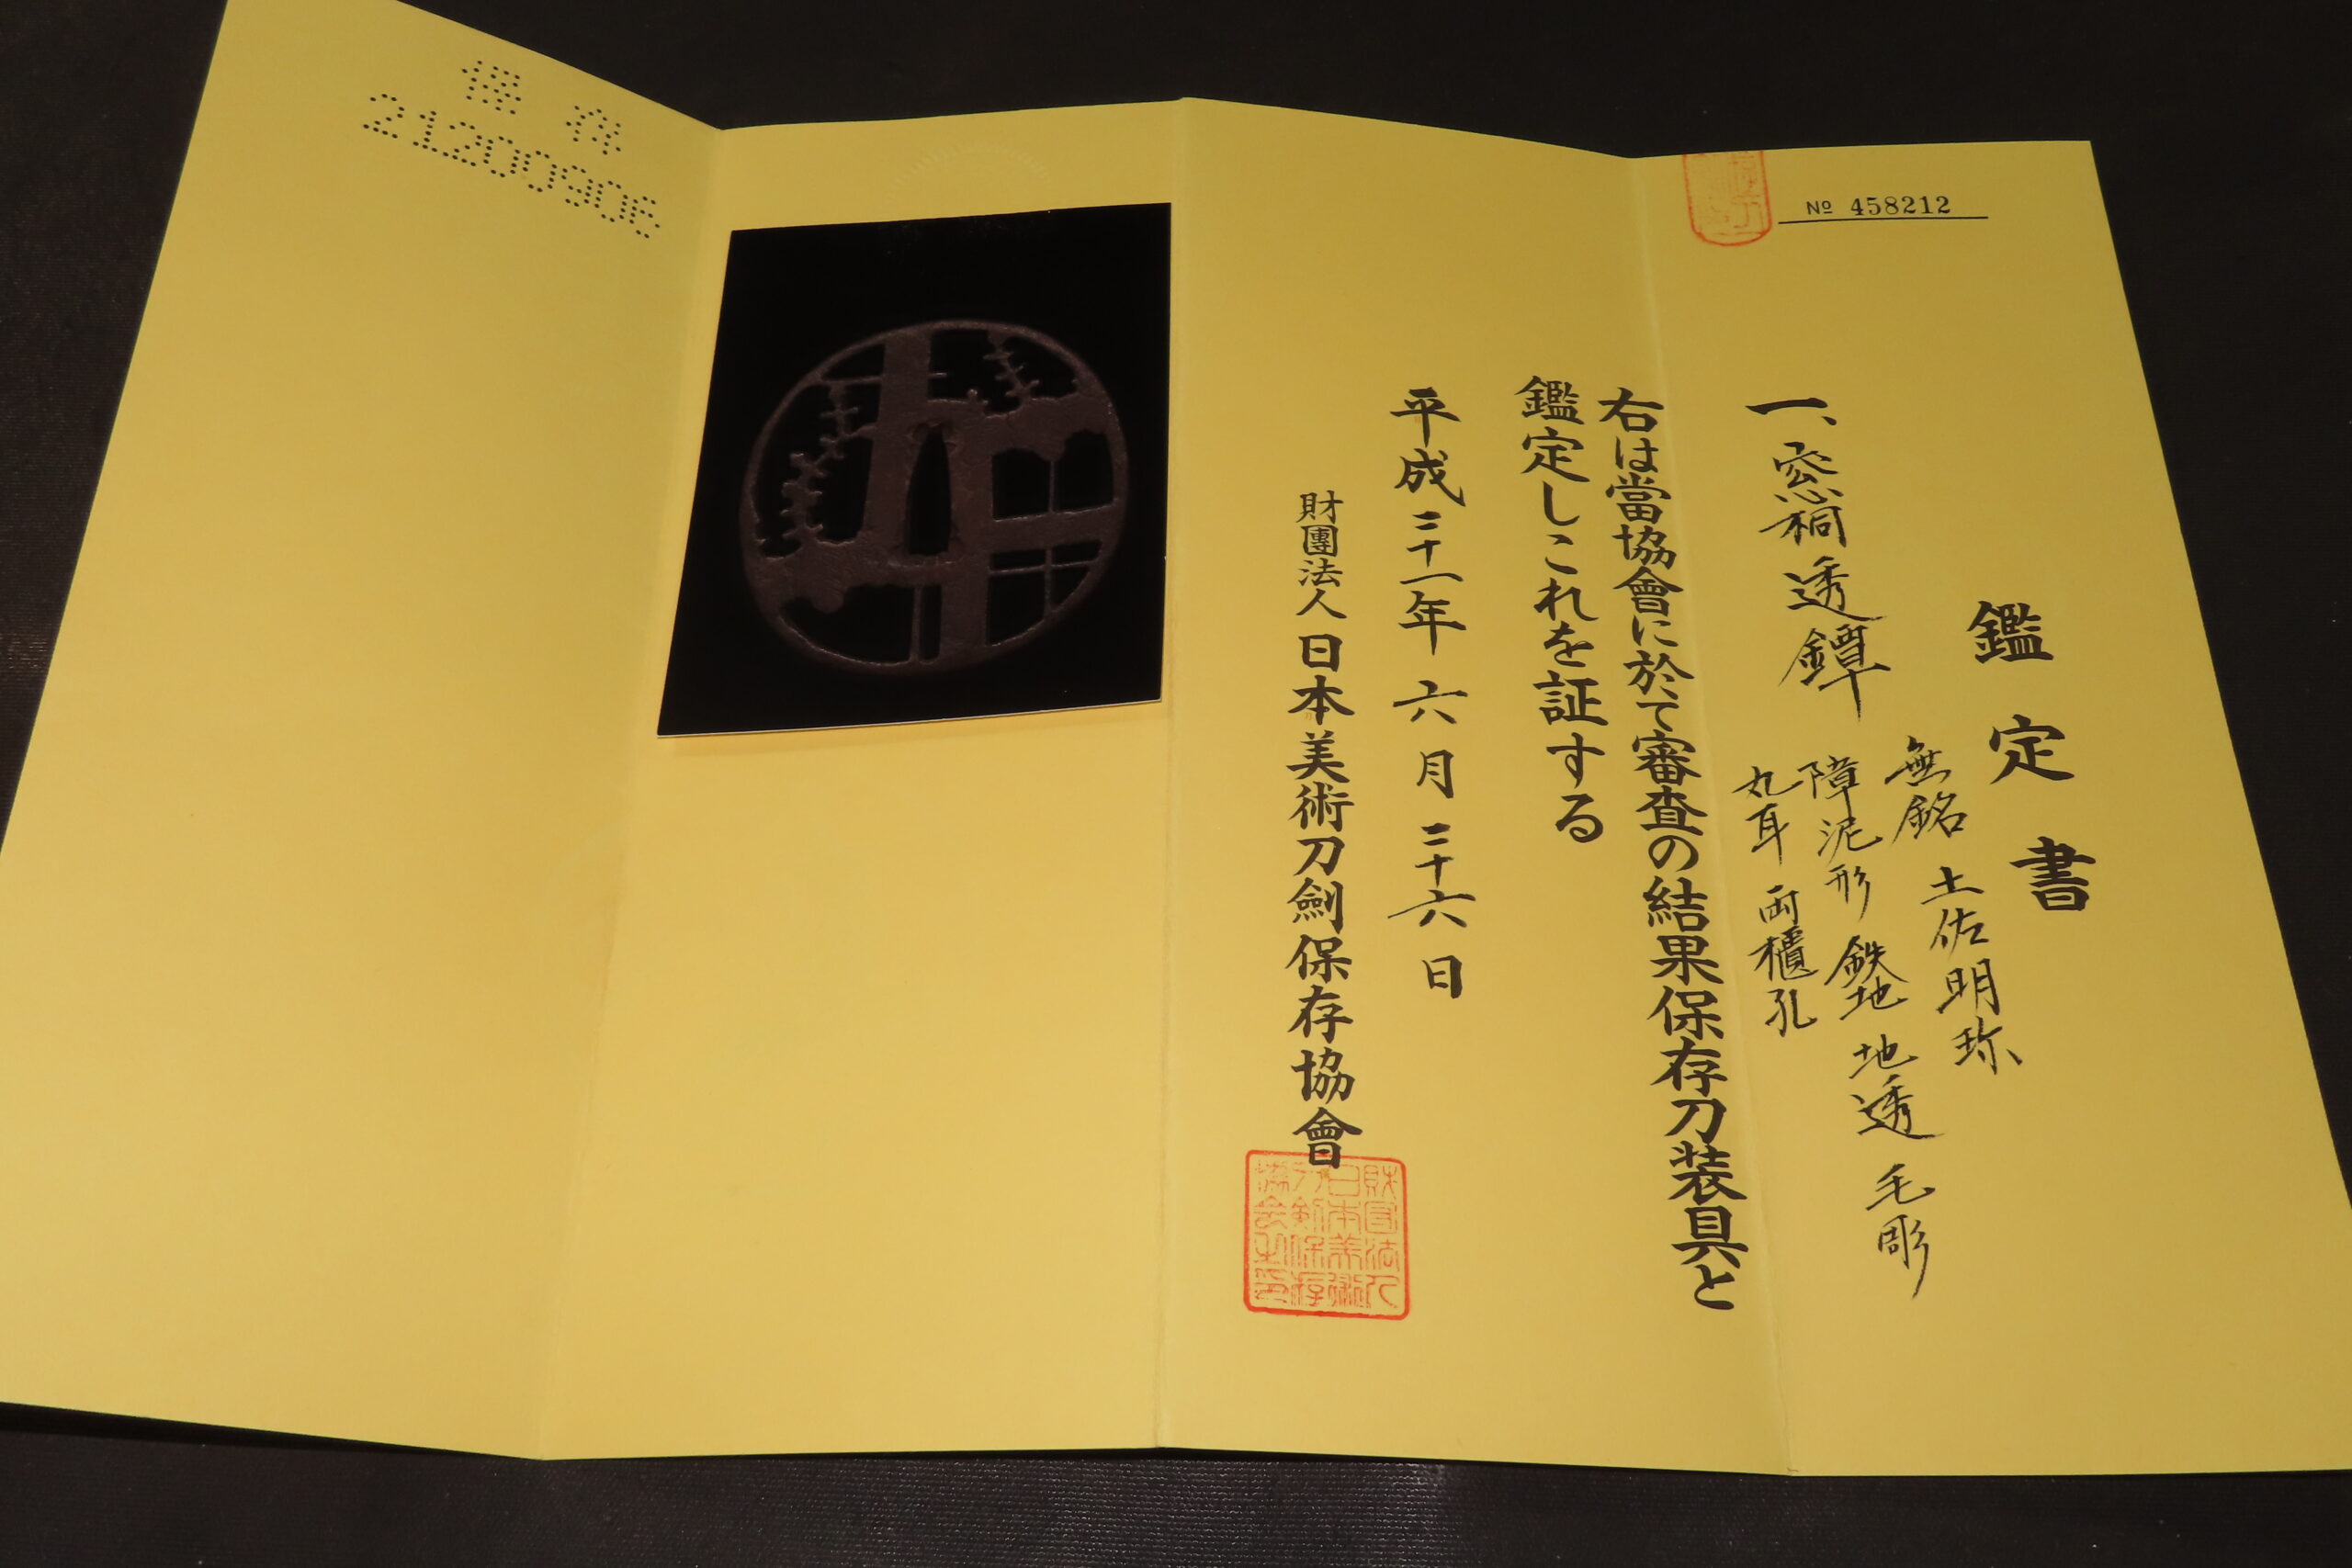 № 458212
鑑定書
一、窓桐透鐔
無銘 土佐明珍
障泥形 鉄地 地透 毛彫
丸耳 両櫃孔
右は當協會に於て審査の結果保存刀装具と
鑑定しこれを証する
平成二十一年 六月 二十六日
財團法人 日本美術刀劍保存協會
保存
21200906